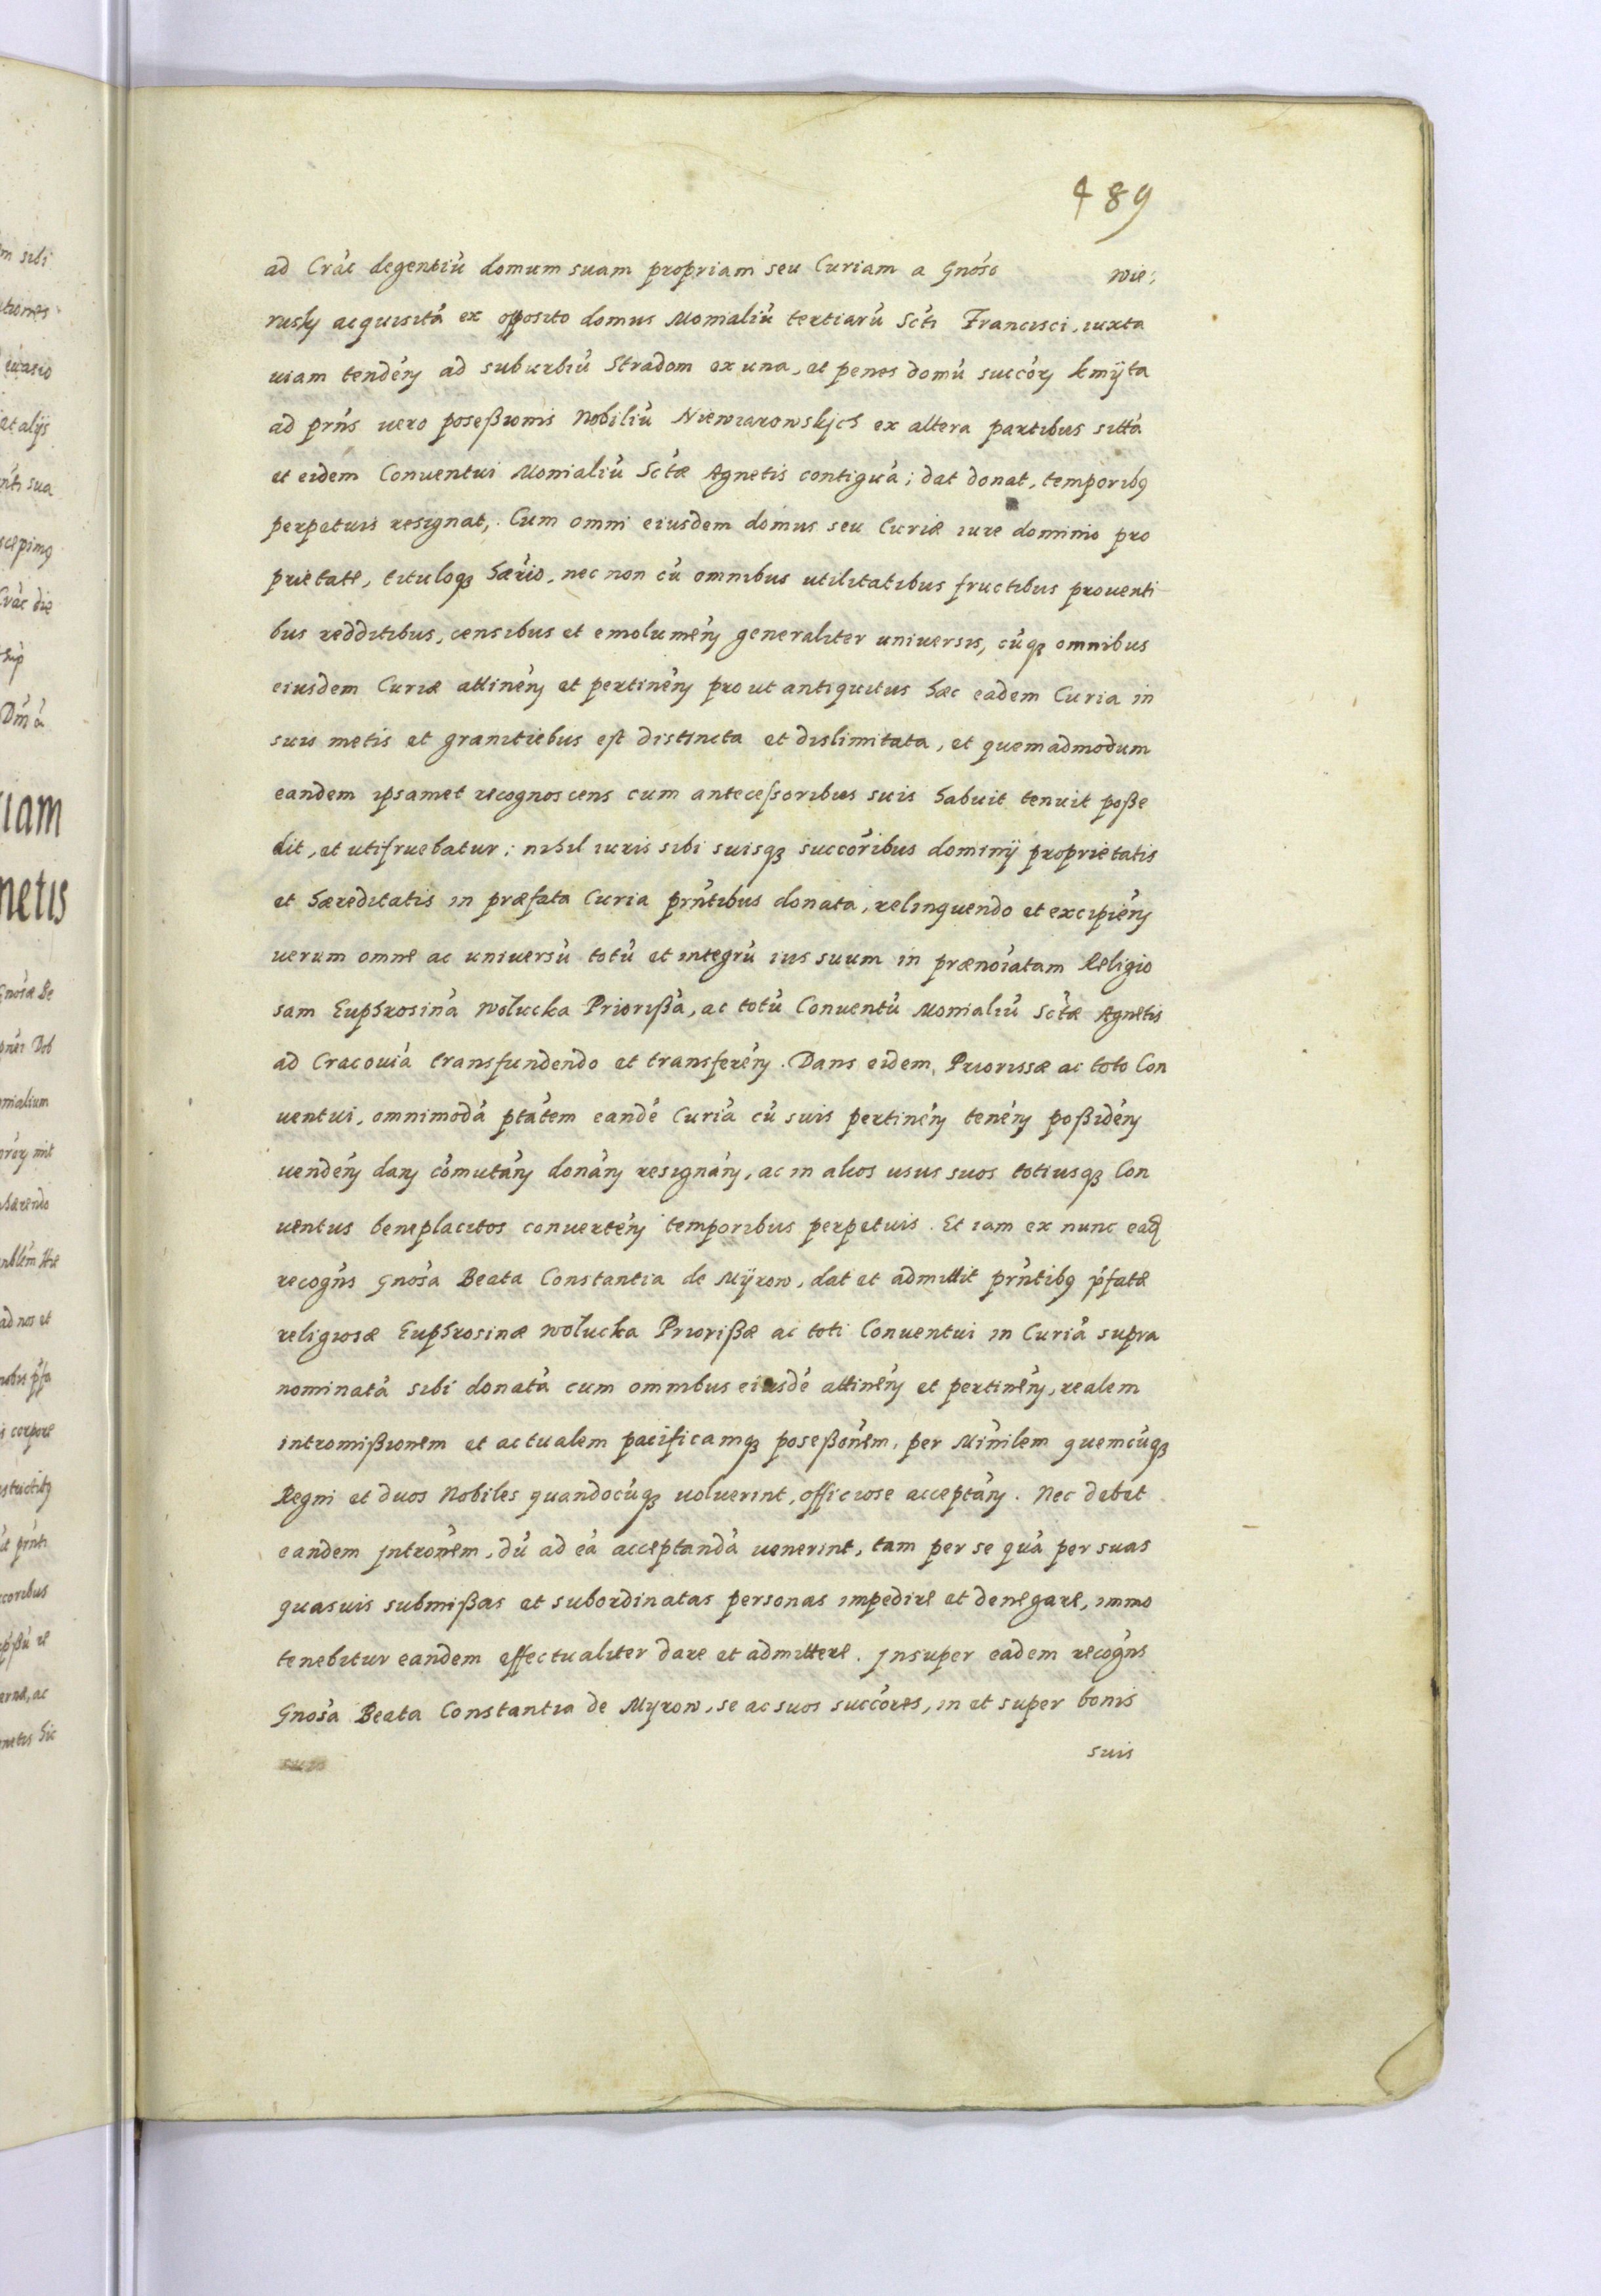 489
ad Crać degentiú domum suam propriam seu Curiam a Gnóso wie:
rusky acquisitá ex opposito domus Monialiú tertiarú Sćti Francisci, iuxta
uiam tendéń ad suburbiú Stradom ex una, et penes domú succóꝝ kmÿta
ad prńs uero poseßionis Nobiliú Niewiarowskjch ex altera partibus sittá
et eidem Conuentui Monialiú Sćtæ Agnetis contiguá; dat donat, temporibꝰ
perpetuis resignat,. Cum omni eiusdem domus seu Curiæ iure dominio pro
prietate, tituloqꝫ hærio, nec non cú omnibus utilitatibus fructibus prouenti
bus redditibus, censibus et emoluméń generaliter uniuersis, cúqꝫ omnibus
eiusdem Curiæ attinéń et pertinéń pro ut antiquitus hæc eadem Curia in
suis metis et granitiebus est distincta et dislimitata, et quemadmodum
eandem ipsamet recognoscens cum anteceſsoribus suis habuit tenuit poße
dit, et utifruebatur; nihil iuris sibi suisqꝫ succóribus dominÿ proprietatis
et hæreditatis in præfata Curia prńtibus donata, relinquendo et excipiéń
uerum omne ac uniuersú totú et integrú ius suum in prænoíatam Religio
sam Euphrosiná Wolucka Priorißá, ac totú Conuentú Monialiú Sćtæ Agnetis
ad Cracouiá transfundendo et transferéń. Dans eidem, Priorissæ ac toto Con
uentui, omnimodá ptátem eandé Curiá cú suis pertinéń tenéń poßidéń
uendéń dań cómutáń donáń resignáń, ac in alios usus suos totiusqꝫ Con
uentus beneplacitos conuertéń temporibus perpetuis. Et iam ex nunc eaɖ
recogńs Gnośa Beata Constantia de Mÿrow, dat et admittit prńtibꝰ ṕfatæ
religiosæ Euphrosinæ Wolucka Priorißæ ac toti Conuentui in Curiá supra
nominatá sibi donatá cum omnibus eiusdé attinéń et pertinéń, realem
intromißionem et actualem pacificamqꝫ poseßońem, per Minílem quemcúqꝫ
Regni et duos Nobiles quandocúqꝫ uoluerint, officiose acceptáń. Nec debet
eandem jntrońem, dú ad eá acceptandá uenerint, tam per se quá per suas
quasuis submißas et subordinatas personas impedire et denegare, immo
tenebitur eandem effectualiter dare et admittere. jnsuper eadem recogńs
Gnośa Beata Constantia de Mÿrow, se ac suos succóres, in et super bonis
suis